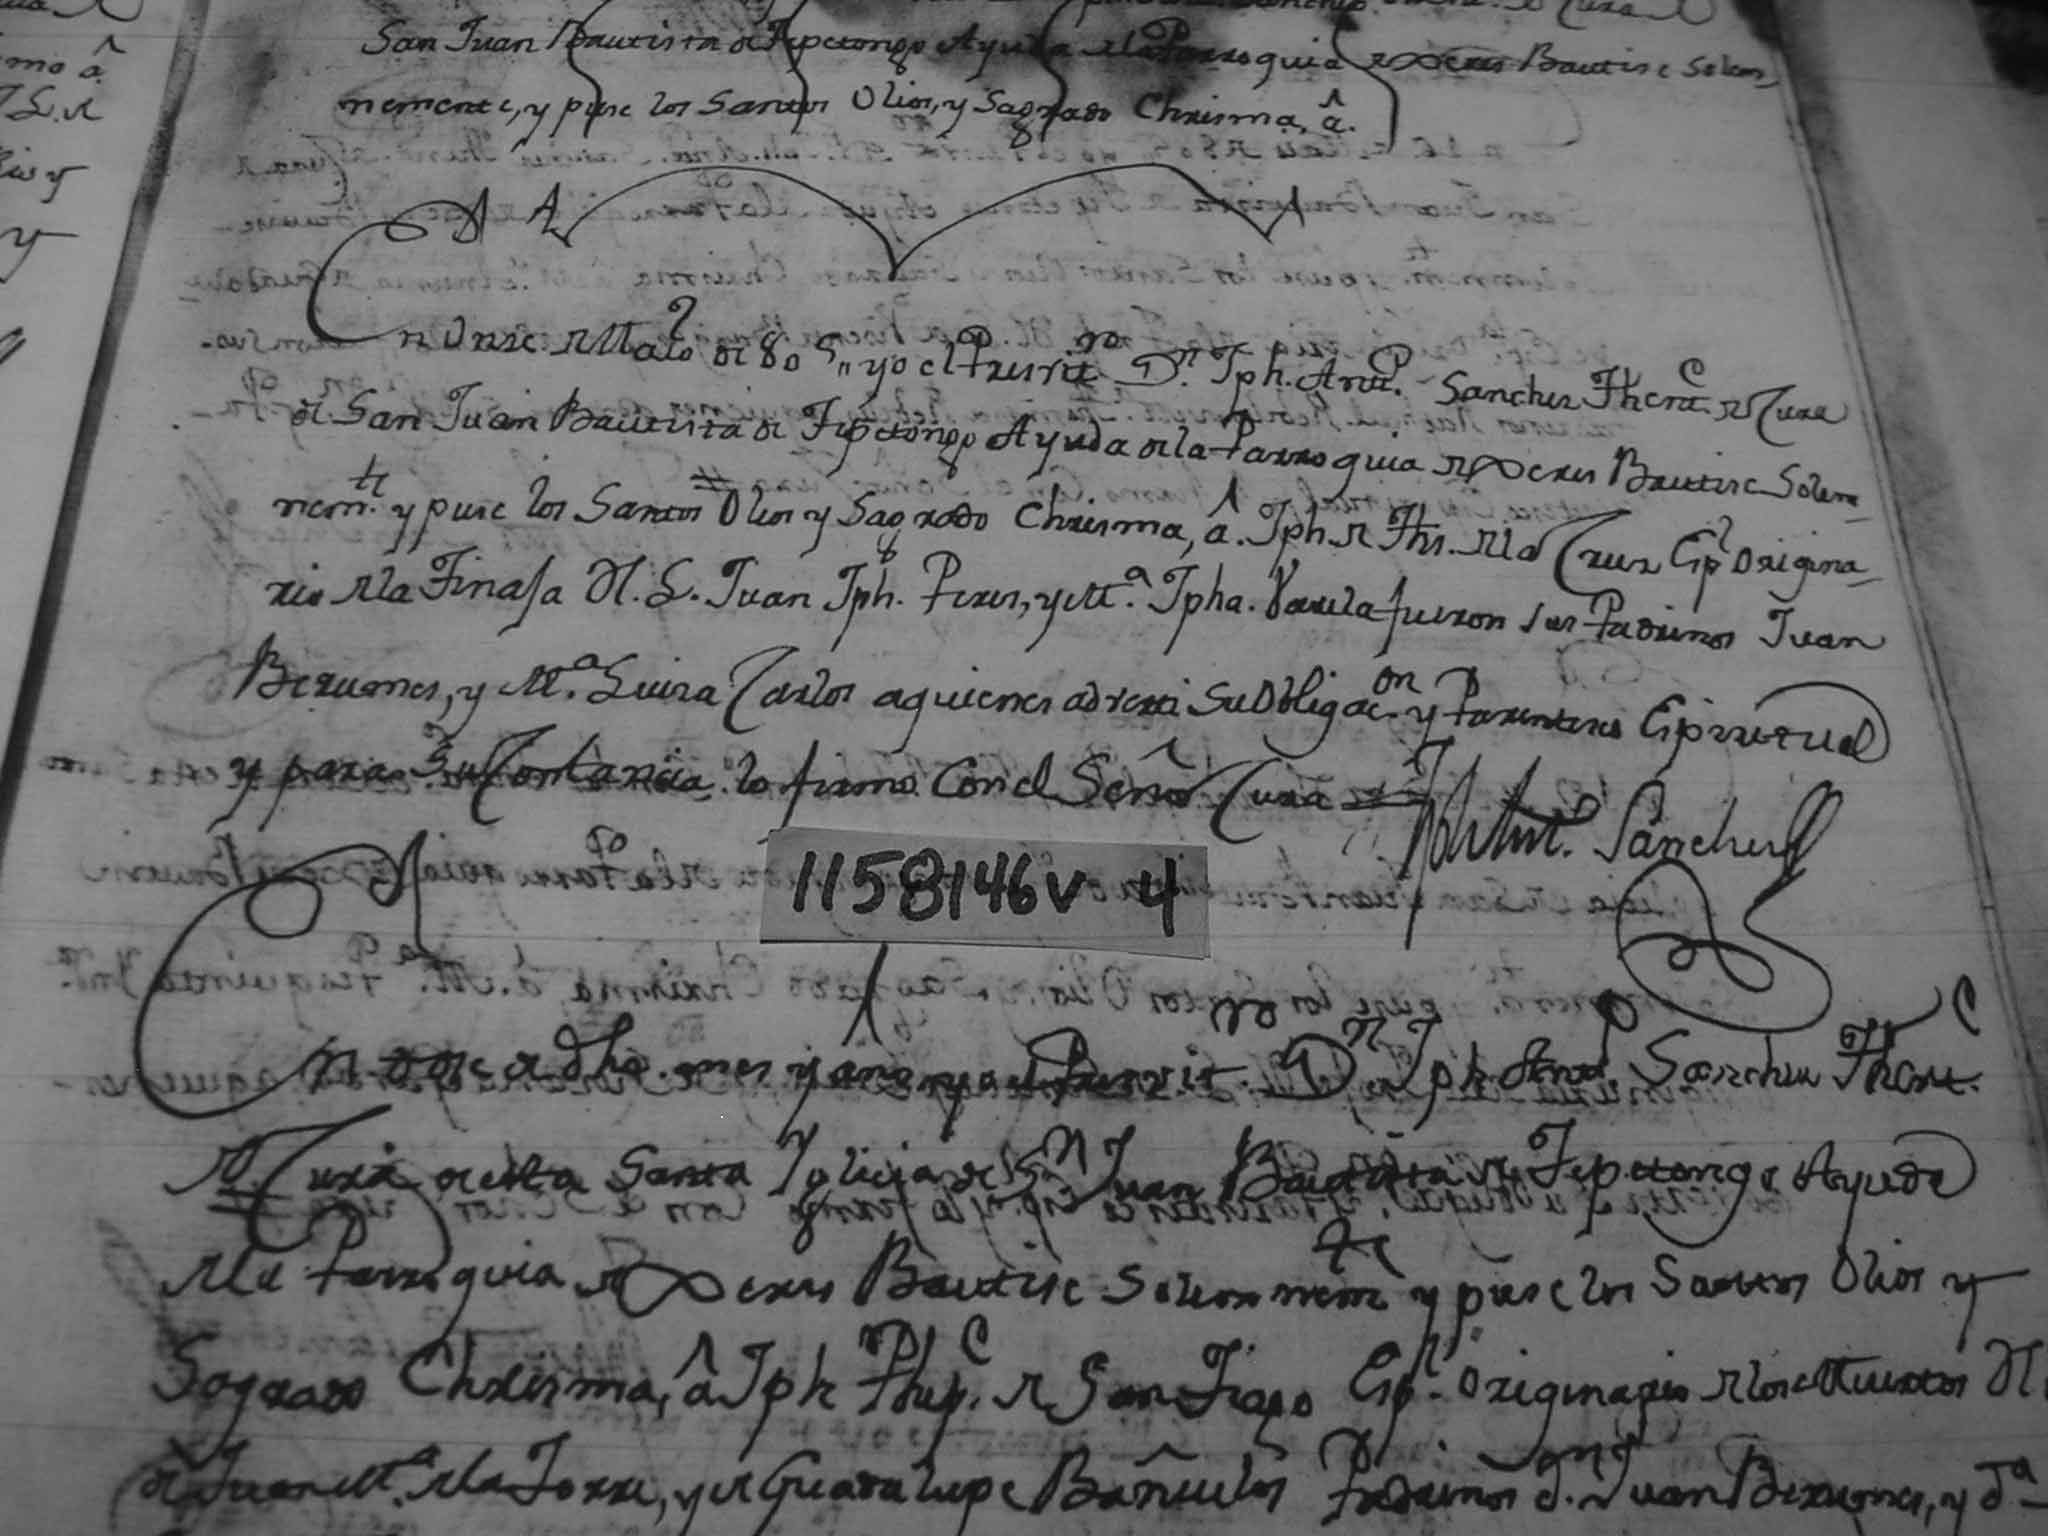 San Juan Bautista de Tepetongo Ayuda de la Parroquia de Xerez Bautise Solem
nemente, y puse los Santos Olios, y Sagrado Chrisma, â.
En Onse de Maio de 805,, yo el Presvit.ro D.n Jph. Ant.o Sanches Thente. de Cura
de San Juan Bautista de Tepetongo Ayuda de la Parroquia de Xeres Bautise Solem
nem.te y puse los Santos Olios y Sagrado Chrisma, â. Jph. de Jhs. de la Cruz Esp.l Origina
rio de la Tinafa H. L. Juan Jph. Peres, y M.a Jpha. Varela fueron sus Padrinos Juan
Berumes, y M.a Luisa Carlos aquienes adverti su Obligac.on y Parentesco Espiritual
y para Su Constancia lo firmo con el Señor Cura
Jph. Ant.o Sanches
11584146v 4
En dose de dho. mes y año yo el Presvit.ro D.n Jph. Ant.o Sanches Thente.
de Cura de esta Santa Yglecia de S.n Juan Bautista de Tepetongo Ayuda
de la Parroquia de Xeres Bautise Solemnem.te y puse los Santos Olios y
Sagrado Chrisma, â Jph Phelp.e de San Tiago Esp.l Originario de los Muertos H.
de Juan M.a de la Torre, y de Guadalupe Bañuelos Padrinos d.n Juan Berumes, y d.a